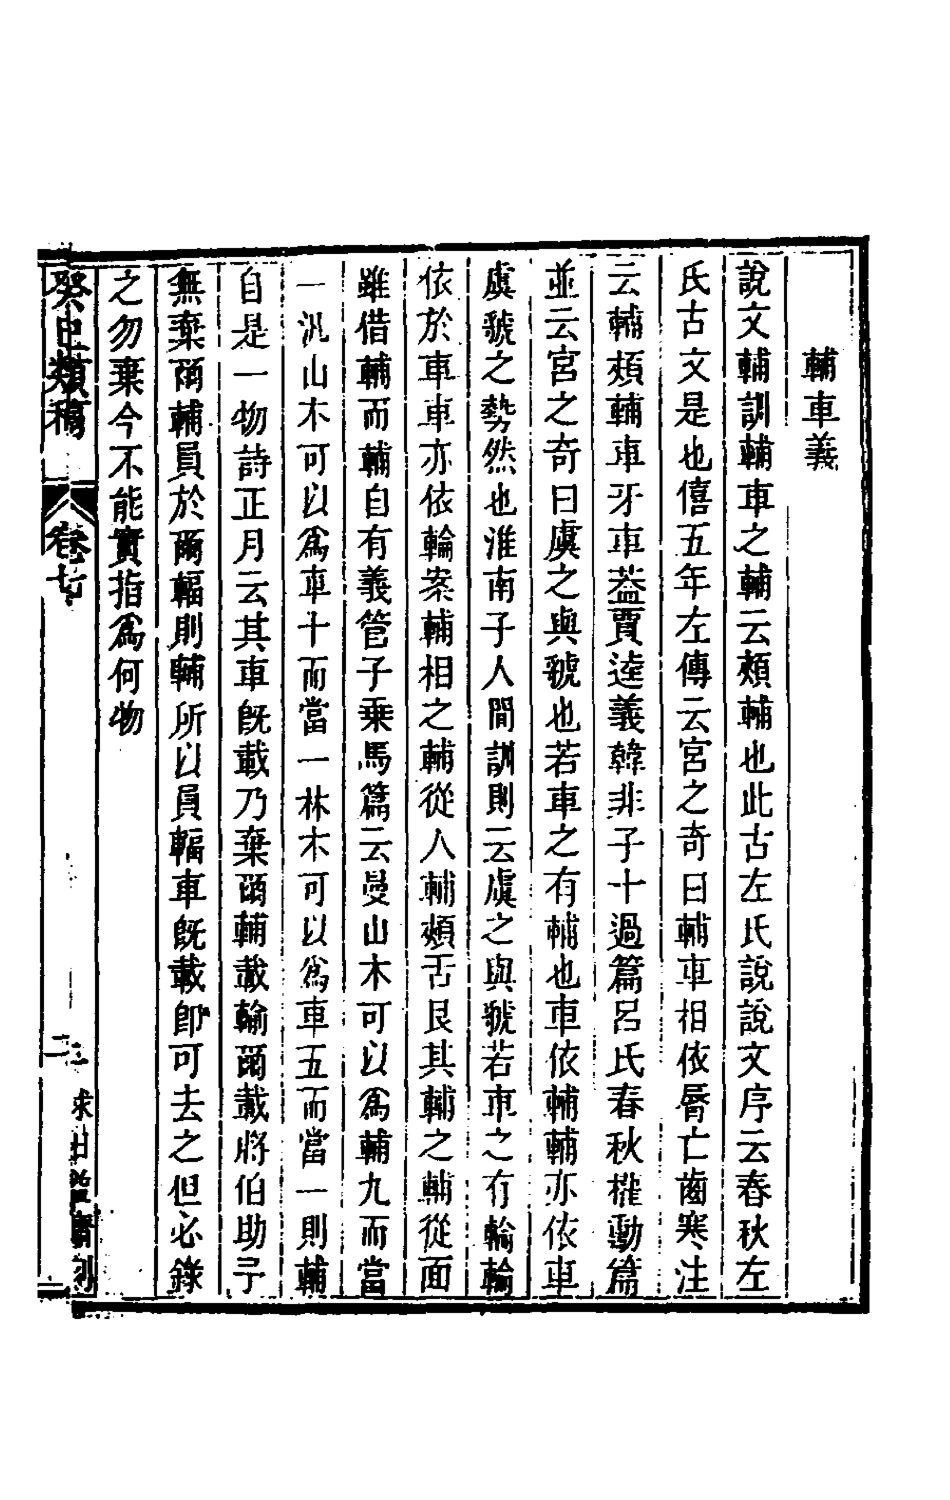 輔車義
說文輔訓輔車之輔云頰輔也此古左氏說說文序云春秋左
氏古文是也僖五年左傳云宮之奇曰輔車相依脣亡齒寒注
云輔頰輔車牙車葢賈逵義韓非子十過篇呂氏春秋權勳篇
並云宮之奇曰虞之與虢也若車之有輔也車依輔輔亦依車
虞虢之勢然也淮南子人間訓則云虞之與虢若車之有輪輪
依於車車亦依輪案輔相之輔從人輔頰舌艮其輔之輔從面
雖借輔而輔自有義管子乗馬篇云蔓山木可以爲輔九而當
一汎山木可以爲車十而當一林木可以爲車五而當一則輔
自是一物詩正月云其車旣載乃棄爾輔載輸爾載將伯助予
無棄爾輔員於爾輻則輔所以員輻車旣載卽可去之但必錄
之勿棄今不能實指爲何物
癸巳類稿 卷七 二 求日益齋刊